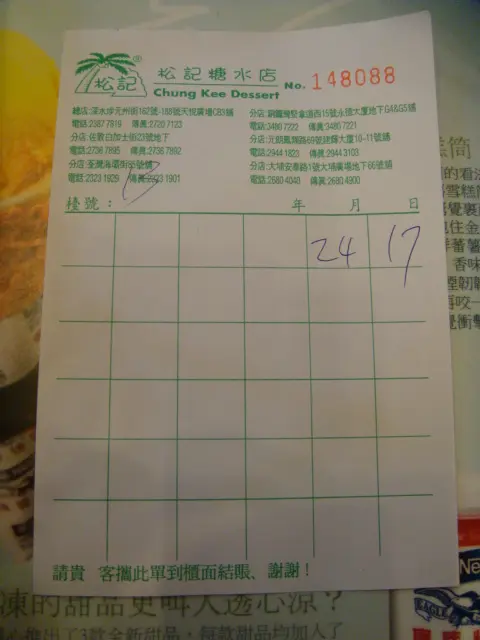 松記®
松記糖水店
Chung Kee Dessert
No. 148088
總店:深水埗元州街162號-188號天悅廣場CB3舖
電話:2387 7919 傳真:2720 7123
分店:佐敦白加士街23號地下
電話:2736 7895 傳真:2736 7892
分店:荃灣海壩街
電話:2323 1929 傳真:2323 1901
分店:銅鑼灣堅拿道西15號永德大廈地下G4&G5舖
電話:3486 7222 傳真:3486 7221
分店:元朗鳳翔路69號建輝大廈10-11號舖
電話:2944 1823 傳真:2944 3103
分店:大埔安泰路1號大埔廣場地下66號舖
電話:2680 4040 傳真:2680 4900
檯號: 年 月 日
24 17
請貴客攜此單到櫃面結賬、謝謝!
筒
的看
雪糕
覺裏
住金
蕃薯
香味
韌
再咬一
覺衝擊
凍的甜品更叫人透心涼?
推出了3款全新甜品,每款甜品均加入了
EAGLE
Ne